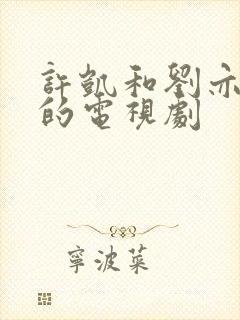 許凱和劉亦
的電視劇
寧波菜